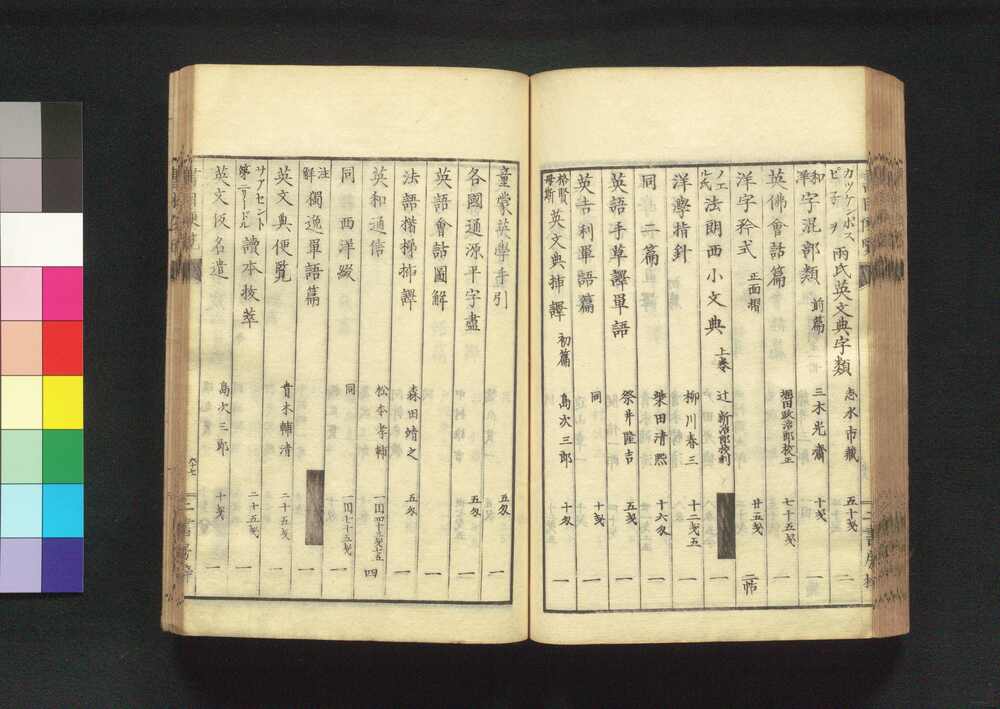 カッケンボス ピ子ヲ 両氏英文典字類 志水市蔵 五十戔 二
和洋字混部類 前篇 三木光斎 十戔 一
英佛會話篇 堀田政治郎校正 七十五戔 一
洋字矜式 正面摺 廿五戔 二帖
ノエル氏 法朗西小文典 上巻 辻新治郎校刻 一
洋學指針 柳川春三 十二戔五 一
同 二篇 柴田清熈 十六匁 一
英語手草譯單語 桑井隆吉 五戔 一
英吉利單語篇 同 十戔 一
格賢勃斯 英文典挿譯 初篇 島次三郎 十匁 一
童蒙英學手引 五匁 一
各國通源平字盡 五匁 一
英語會話圖解 一
法語楷梯挿譯 森田靖之 五匁 一
英和通信 松本孝輔 一円四十三戔七五 四
同 西洋綴 同 一円七十五戔
注解 獨逸單語篇 一
英文典便覧 青木輔清 二十五戔 一
サアセント 第二リードル 讀本抜萃 二十五戔 一
英文仮名遣 島次三郎 十戔 一